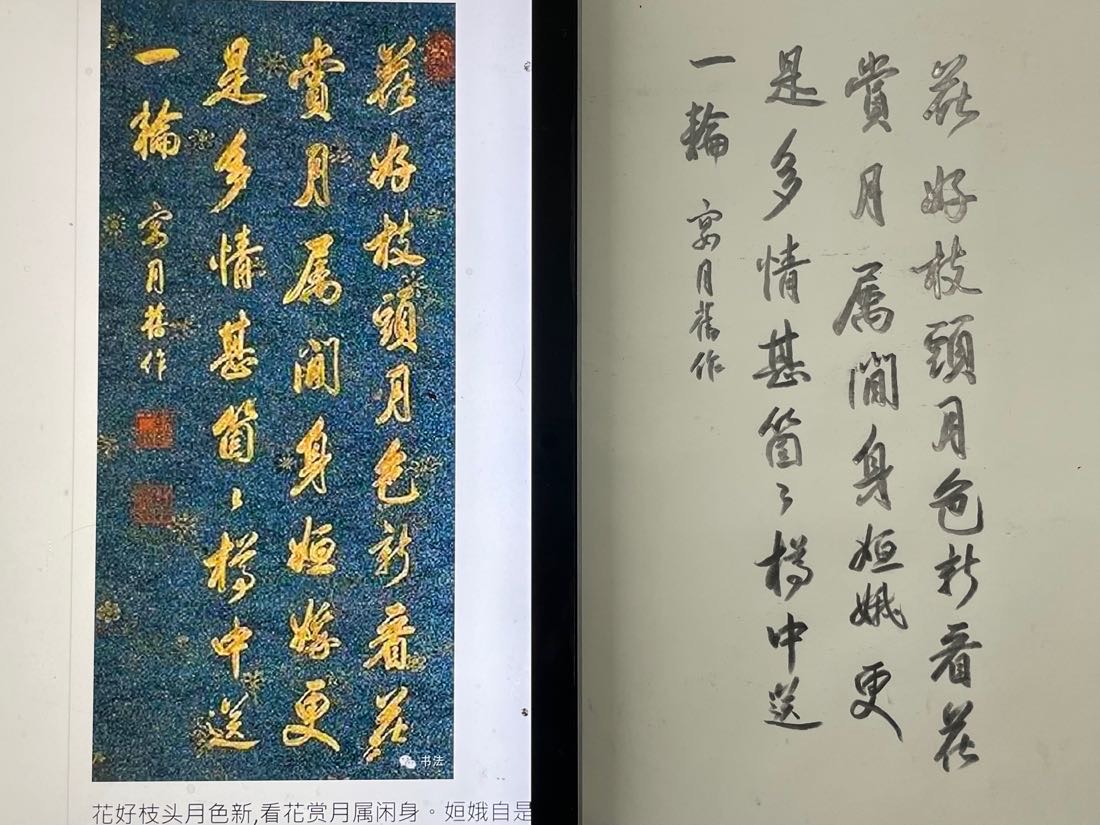 花好枝頭月色新看花
賞月属閒身姮娥更
是多情甚箇〻樽中送
一輪
宴月舊作
书法
花好枝头月色新,看花赏月属闲身。姮娥自是
花好枝頭月色新看花
賞月属閒身姮娥更
是多情甚箇〻樽中送
一輪
宴月舊作